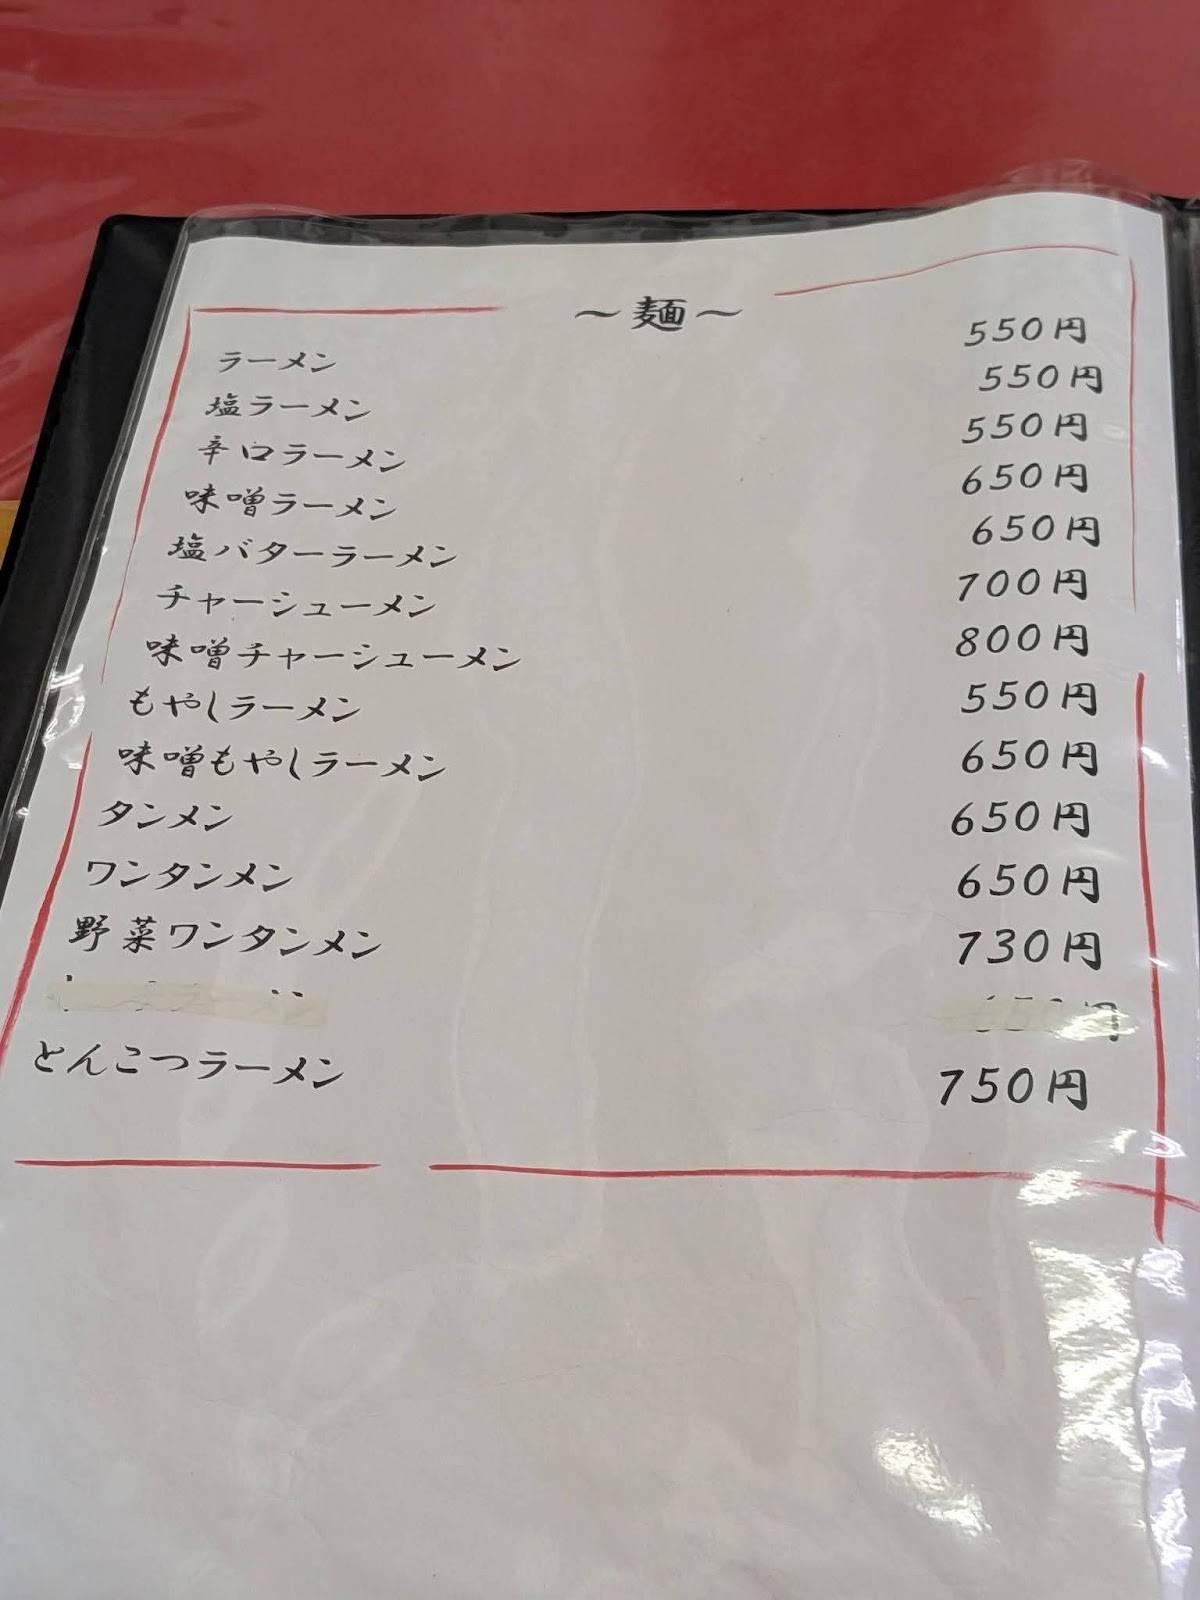 ～麺～
ラーメン 550円
塩ラーメン 550円
辛口ラーメン 550円
味噌ラーメン 650円
塩バターラーメン 650円
チャーシューメン 700円
味噌チャーシューメン 800円
もやしラーメン 550円
味噌もやしラーメン 650円
タンメン 650円
ワンタンメン 650円
野菜ワンタンメン 730円
とんこつラーメン 750円